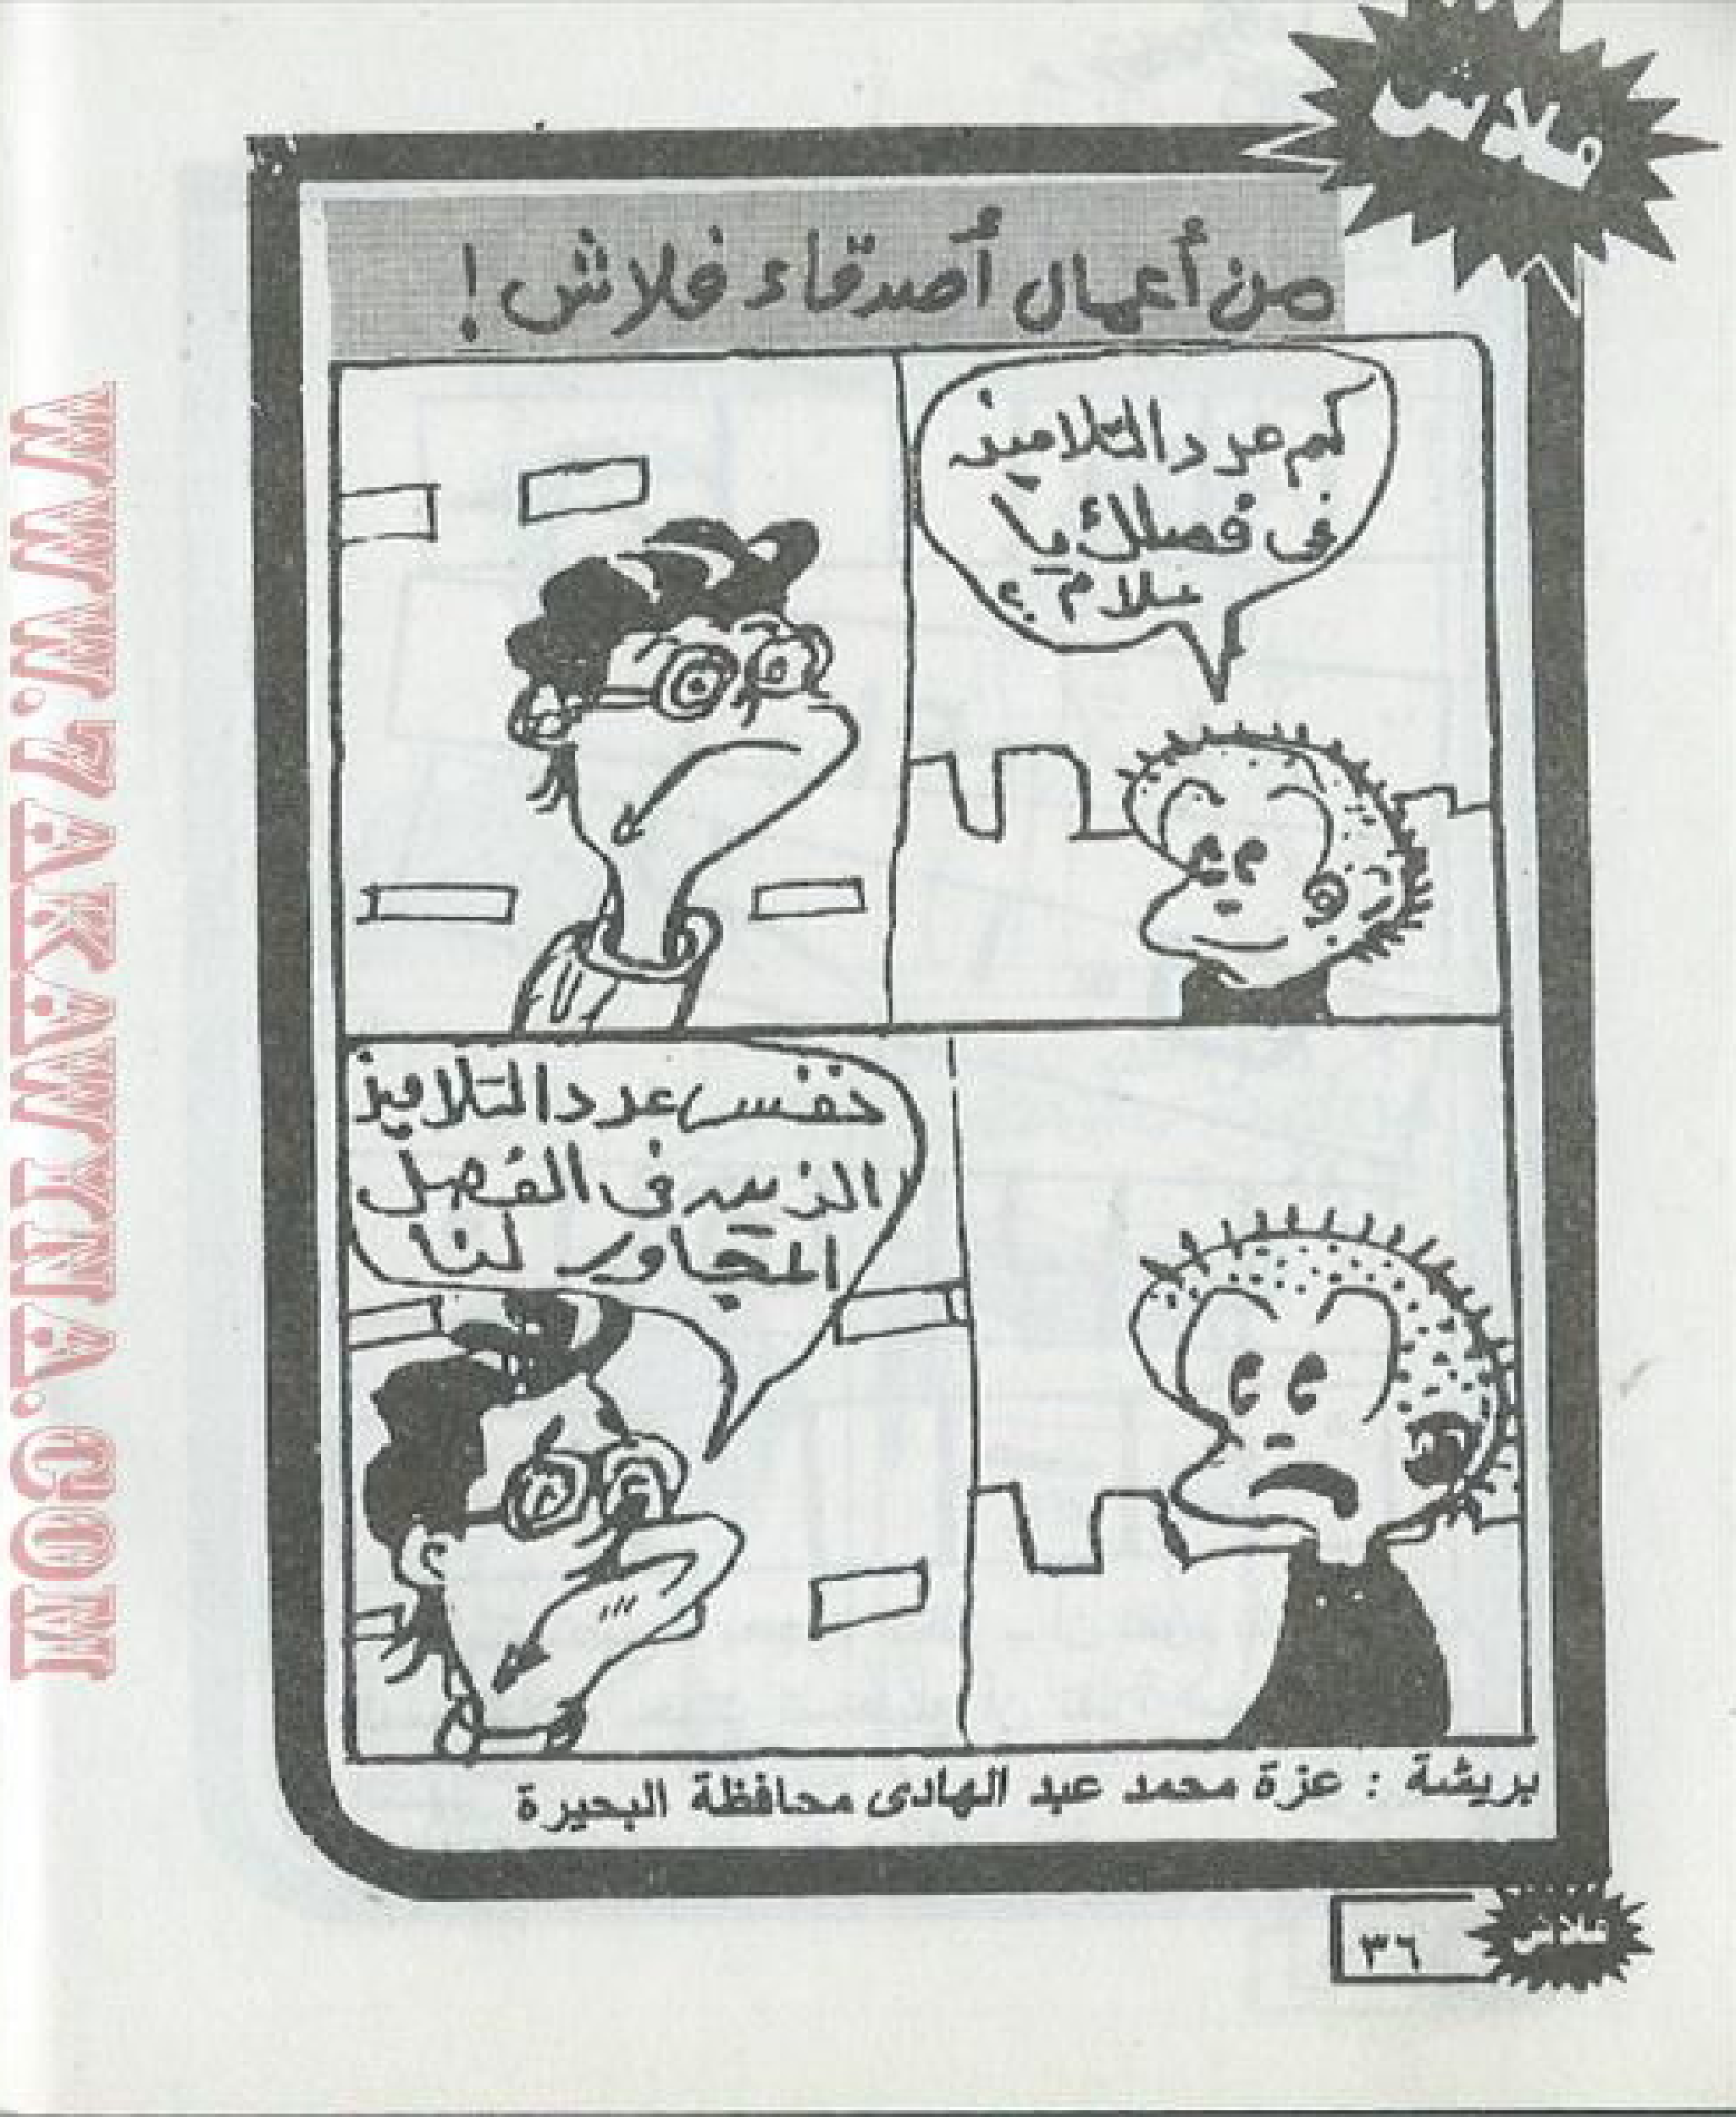 فلاش
من أعمال أصدقاء فلاش !
كم عدد التلاميذ
فى فصلك يا
علام ؟
نفس عدد التلاميذ
الذين فى الفصل
المجاور لنا
بريشة : عزة محمد عبد الهادى محافظة البحيرة
٣٦
فلاش
WWW.7AKAWTNA.COM